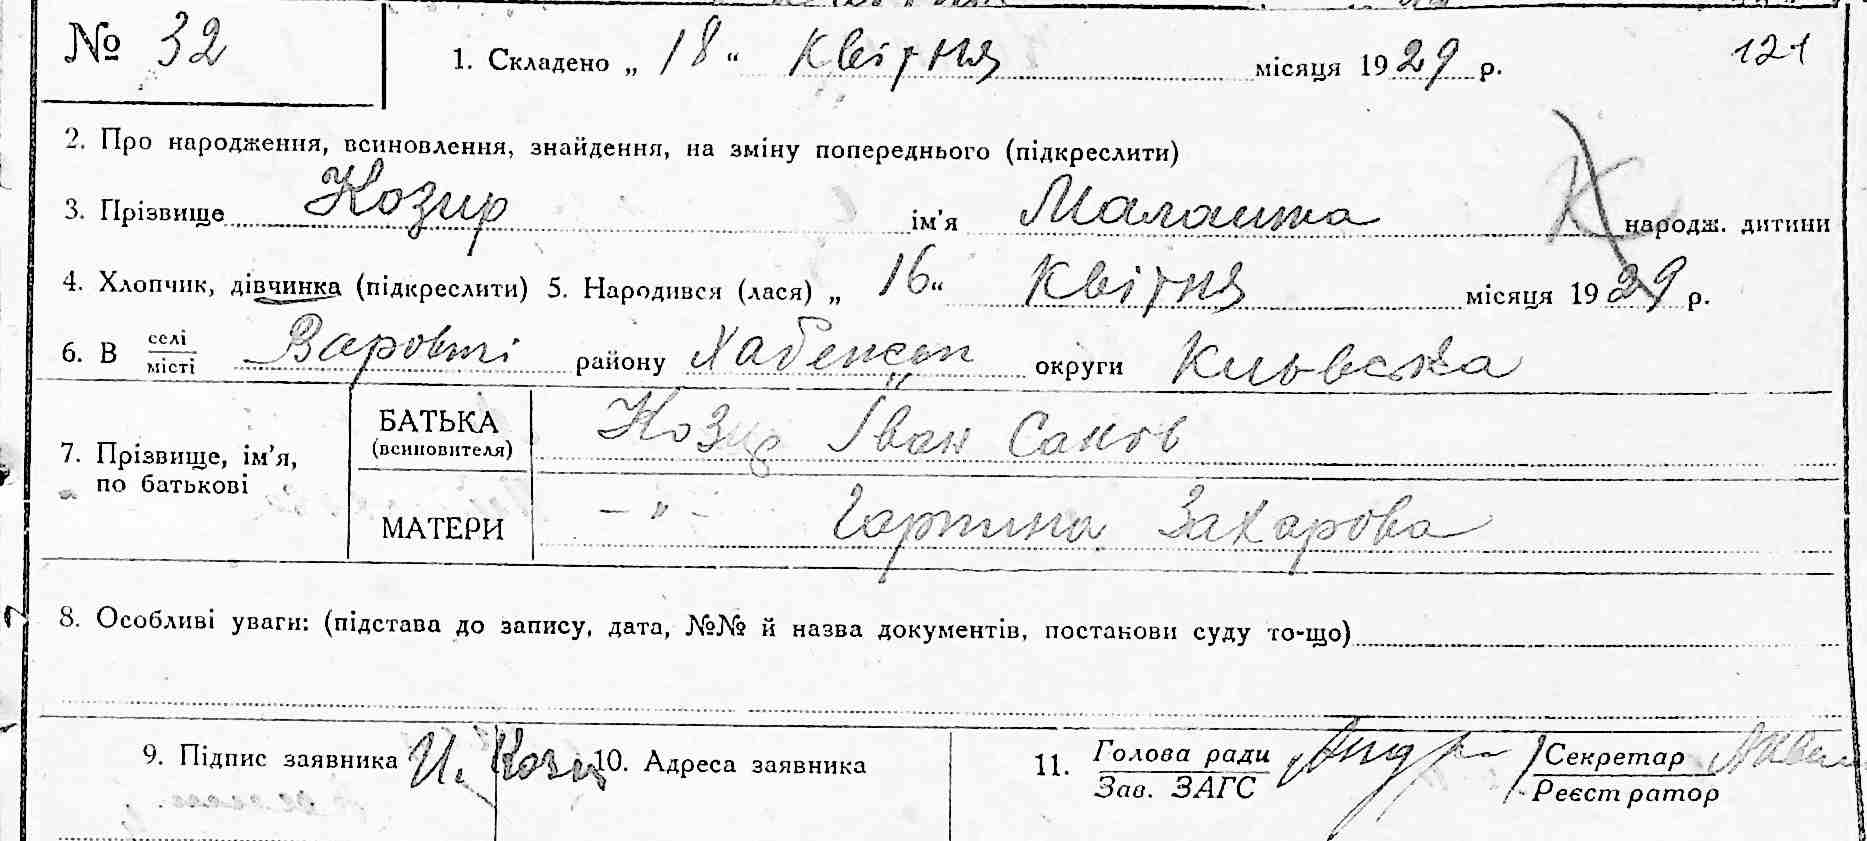 № 32
1. Складено „ 18 “ Квітня місяця 1929 р. 121
2. Про народження, всиновлення, знайдення, на зміну попереднього (підкреслити)
3. Прізвище Козир ім’я Малашка К народж. дитини
4. Хлопчик, дівчинка (підкреслити) 5. Народився (лася) „ 16 “ Квітня місяця 1929 р.
6. В селі/місті Варовичі району Хабенськ округи Київська
7. Прізвище, ім’я, по батькові
БАТЬКА (всиновителя) Козир Іван Саков
МАТЕРИ — „ — Гарпина Захарова
8. Особливі уваги: (підстава до запису, дата, №№ й назва документів, постанови суду то-що)
9. Підпис заявника И. Козир
10. Адреса заявника
11. Голова ради
Зав. ЗАГС
Секретар
Реєстратор